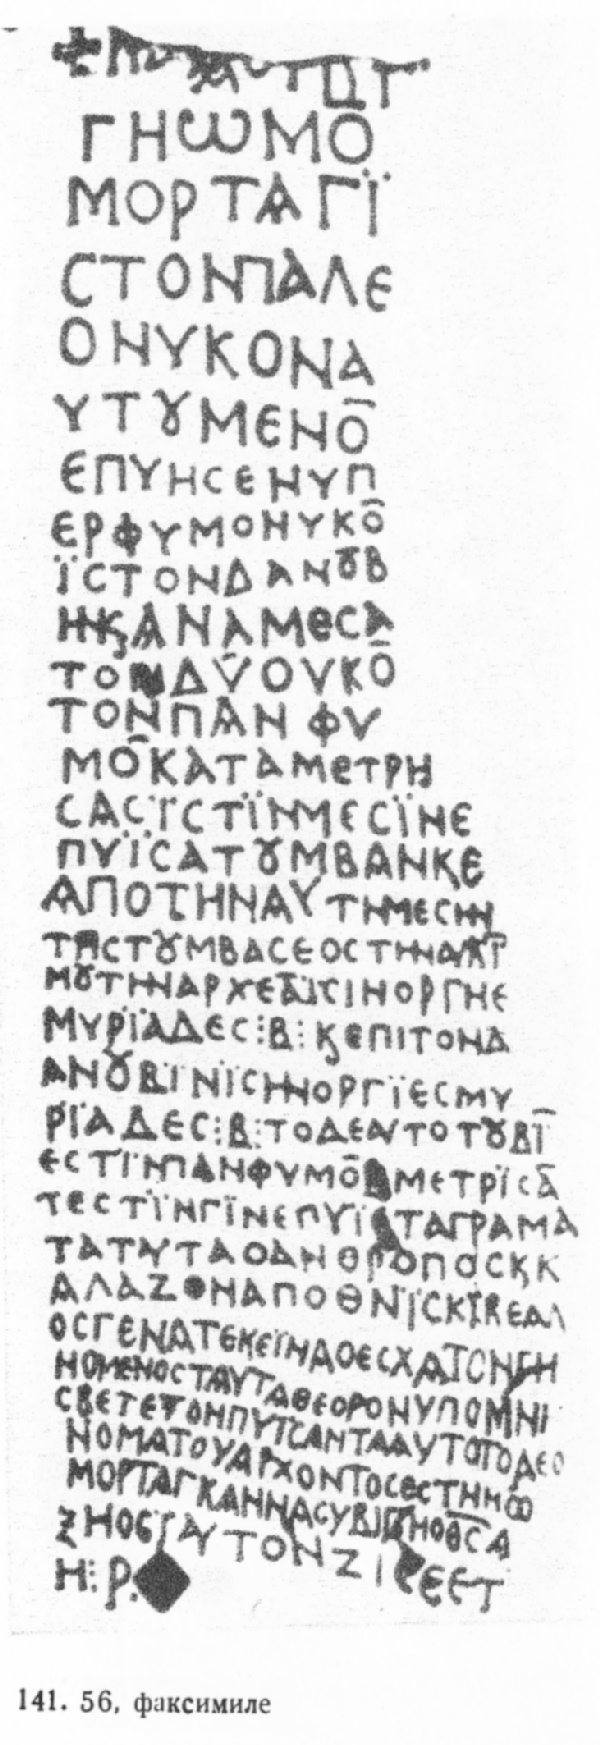 ΓΗѠΜΟ̄
ΜΟΡΤΑΓΪ
CΤΟΝΠΑΛΕ
ΟΝΥΚΟΝΑ
ΥΤȢΜΕΝΟ̄
ΕΠΥΗCΕΝΥΠ
ΕΡΦΥΜΟΝΥΚΟ̄
ΪCΤΟΝΔΑΝȢΒ
ΗΝϗΑΝΑΜΕCΑ
ΤΟΝΔΥΟΥΚΟ̄
ΤΟΝΠΑΝΦΥ
ΜΟ̄ΚΑΤΑΜΕΤΡΗ
CΑCΪCΤΪΝΜΕCΪΝΕ
ΠΥΪCΑΤȢΜΒΑΝϗΕ
ΑΠΟΤΗΝΑΥΤΗΜΕCΗΝ
ΤΗCΤȢΜΒΑCΕΟCΤΗΝΑΥΛΪ
ΜȢΤΗΝΑΡΧΕᾹΪCΙΝΟΡΓΗΕ
ΜΥΡΪΑΔΕC⁝Β⁝ϗΕΠΙΤΟΝΔ
ΑΝȢΒΪΝΪCΗΝΟΡΓΪΕCΜΥ
ΡΪΑΔΕC⁝Β⁝ΤΟΔΕΑΥΤΟΤȢΒΪ
ΕCΤΪΝΠΑΝΦΥΜΟ̄ϗΜΕΤΡΪCᾹ
ΤΕCΤΪΝΓΪΝΕΠΥΪCΑΤΑΓΡΑΜΑ
ΤΑΤΑΥΤΑΟΑΝΘΡΟΠΟCϗΚ
ΑΛΑΖΟΝΑΠΟΘΝΪCΚΙϗΕΑΛ
ΟCΓΕΝΑΤΕΚΕΪΝΑΟΕCΧΑΤΟΝΓΗ
ΝΟΜΕΝΟCΤΑΥΤΑΘΕΟΡΟΝΥΠΟΜΝΙ
CΚΕΤΕΤΟΝΠΥΪCΑΝΤΑΑΥΤΟΤΟΔΕΟ
ΝΟΜΑΤΟΥΑΡΧΟΝΤΟCΕCΤΗΝѠ
ΜΟΡΤΑΓΚΑΝΝΑCΥΒΙΓΗΟΘ̄CΑ
ΞΗΟCΪΑΥΤΟΝΖΙCΕΕΤ
Η⁝Ρ⁝
141. 56, факсимиле